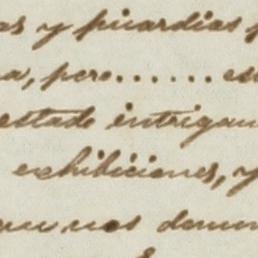 as y picardias
a, pero...... es
estado intrigan
exhibiciones, y
au nos demu